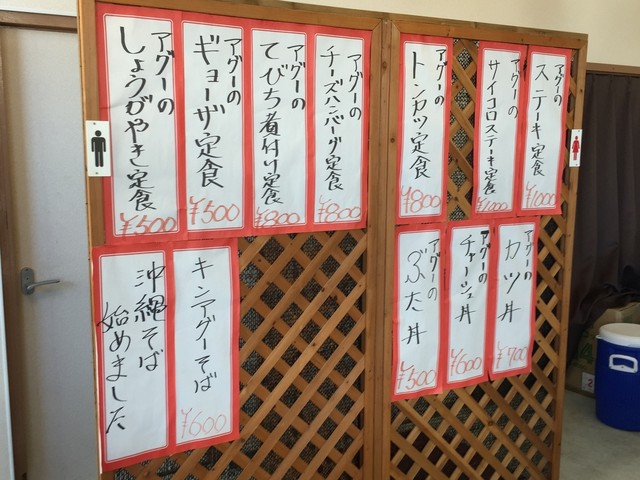 アグーの
ステーキ定食
¥1000
アグーの
サイコロステーキ定食
¥1000
アグーの
トンカツ定食
¥800
アグーの
チーズハンバーグ定食
¥800
アグーの
てびち煮付り定食
¥800
アグーの
ギョーザ定食
¥500
アグーの
しょうがやき定食
¥500
アグーの
カツ丼
¥700
アグーの
チャーシュ丼
¥600
アグーの
ぶた丼
¥500
キンアグーそば
¥600
沖縄そば
始めました